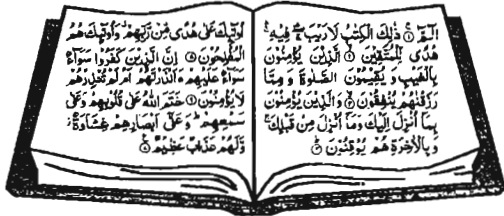 الٓمّٓ ۝١ ذٰلِكَ الْكِتٰبُ لَا رَيْبَ ۛ فِيْهِ ۛ
هُدًى لِّلْمُتَّقِيْنَ ۝٢ الَّذِيْنَ يُؤْمِنُوْنَ
بِالْغَيْبِ وَيُقِيْمُوْنَ الصَّلٰوةَ وَمِمَّا
رَزَقْنٰهُمْ يُنْفِقُوْنَ ۝٣ وَالَّذِيْنَ يُؤْمِنُوْنَ
بِمَآ اُنْزِلَ اِلَيْكَ وَمَآ اُنْزِلَ مِنْ قَبْلِكَ ۚ
وَبِالْاٰخِرَةِ هُمْ يُوْقِنُوْنَ ۝٤
اُولٰٓئِكَ عَلٰى هُدًى مِّنْ رَّبِّهِمْ وَاُولٰٓئِكَ هُمُ
الْمُفْلِحُوْنَ ۝٥ اِنَّ الَّذِيْنَ كَفَرُوْا سَوَآءٌ
سَوَآءٌ عَلَيْهِمْ ءَاَنْذَرْتَهُمْ اَمْ لَمْ تُنْذِرْهُمْ
لَا يُؤْمِنُوْنَ ۝٦ خَتَمَ اللّٰهُ عَلٰى قُلُوْبِهِمْ وَعَلٰى
سَمْعِهِمْ ؕ وَعَلٰٓى اَبْصَارِهِمْ غِشَاوَةٌ ؗ
وَّلَهُمْ عَذَابٌ عَظِيْمٌ ۝٧